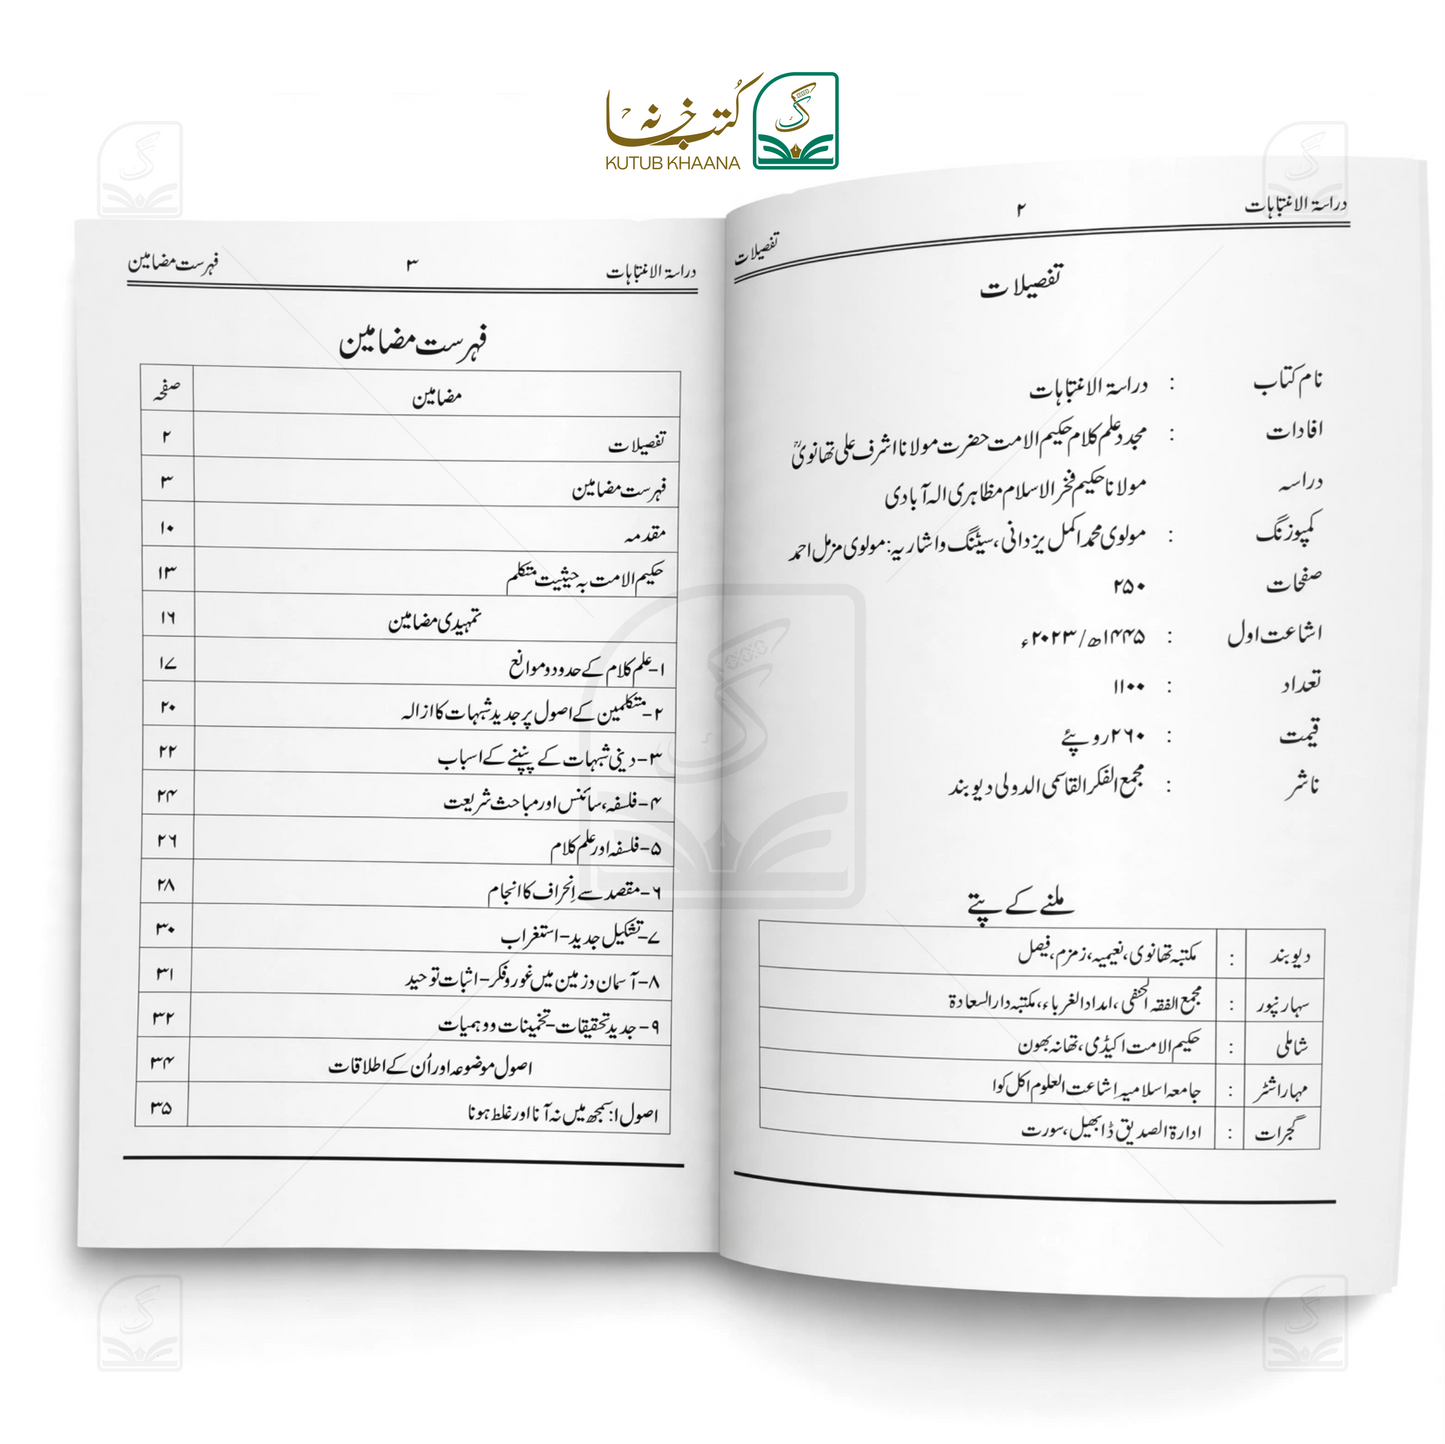 کتب خانہ
KUTUB KHAANA
دراسۃ الانتباہات ۲ تفصیلات
تفصیلات
نام کتاب : دراسۃ الانتباہات
افادات : مجدد علم کلام حکیم الامت حضرت مولانا اشرف علی تھانویؒ
دراسہ مولانا حکیم فخر الاسلام مظاہری الہ آبادی
کمپوزنگ : مولوی محمد اکمل یزدانی، سیٹنگ واشاریہ: مولوی مزمل احمد
صفحات ۲۵۰
اشاعت اول : ۱۴۴۵ھ/۲۰۲۳ء
تعداد : ۱۱۰۰
قیمت : ۲۶۰ روپئے
ناشر : مجمع الفکر القاسمی الدولی دیوبند
ملنے کے پتے
دیوبند : مکتبہ تھانوی، نعیمیہ، زمزم، فیصل
سہارنپور : مجمع الفقہ الحنفی، امداد الغرباء، مکتبہ دارالسعادۃ
شاملی : حکیم الامت اکیڈی، تھانہ بھون
مہاراشٹر : جامعہ اسلامیہ اشاعت العلوم اکل کوا
گجرات : ادارۃ الصدیق ڈابھیل، سورت
دراسۃ الانتباہات ۳ فہرست مضامین
فہرست مضامین
مضامین صفحہ
تفصیلات ۲
فہرست مضامین ۳
مقدمہ ۱۰
حکیم الامت بہ حیثیت متکلم ۱۳
تمہیدی مضامین ۱۶
۱-علم کلام کے حدود و موانع ۱۷
۲-متکلمین کے اصول پر جدید شبہات کا ازالہ ۲۰
۳-دینی شبہات کے پنپنے کے اسباب ۲۲
۴-فلسفہ، سائنس اور مباحث شریعت ۲۴
۵-فلسفہ اور علم کلام ۲۶
۶-مقصد سے اِنحراف کا انجام ۲۸
۷-تشکیل جدید-استغراب ۳۰
۸-آسمان و زمین میں غور و فکر-اثبات توحید ۳۱
۹-جدید تحقیقات-تخمینات و وہمیات ۳۲
اصول موضوعہ اور اُن کے اطلاقات ۳۴
اصول۱: سمجھ میں نہ آنا اور غلط ہونا ۳۵